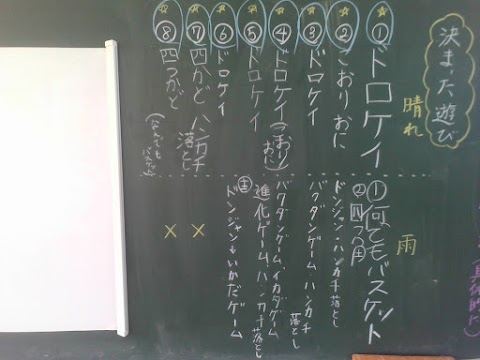 決まった遊び
晴れ
①ドロケイ
②こおりおに
③ドロケイ
④ドロケイ(こおりおに)
⑤ドロケイ
⑥ドロケイ
⑦四かど ハンカチ落とし
⑧四つかど
(なんでもバスケット)
雨
①何でもバスケット
②四つ角
ドンジャン・ハンカチ落とし
バクダンゲーム ハンカチ落とし
バクダンゲーム、イカダゲーム
進化ゲーム ハンカチ落とし
ドンジャン・いかだゲーム
×
×